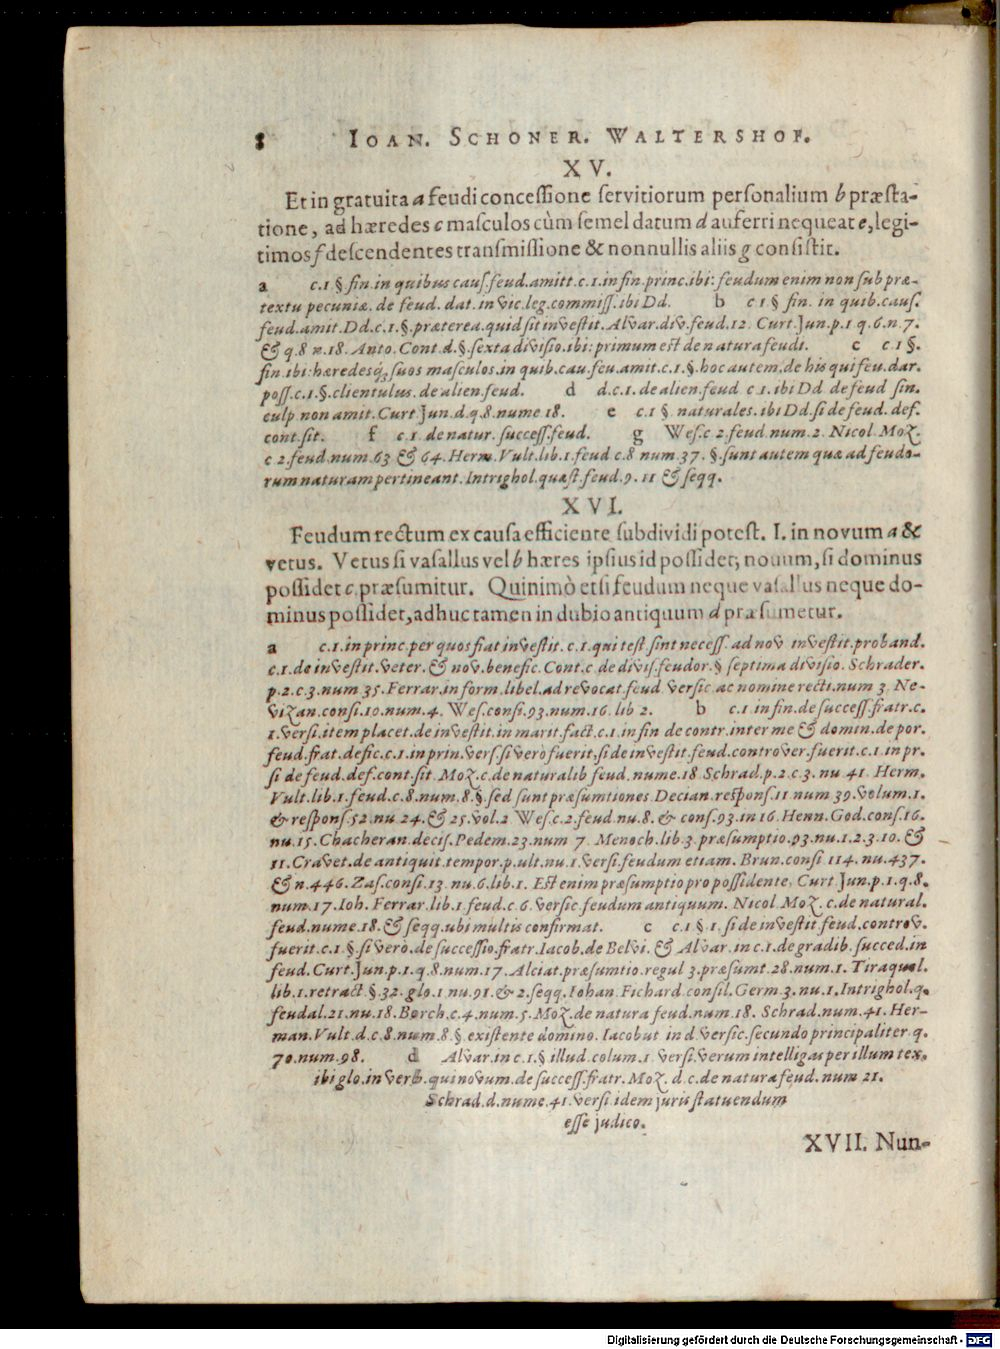 8 IOAN. SCHONER. WALTERSHOF.
XV.
Et in gratuita a feudi concessione servitiorum personalium b præsta-
tione, ad hæredes c masculos cùm semel datum d auferri nequeat e, legi-
timos f descendentes transmissione & nonnullis aliis g consistit.
a c.1 § fin. in quibus caus. feud. amitt. c. 1. in fin. princ. ibi: feudum enim non sub præ-
textu pecuniæ. de feud. dat. in vic. leg. commiss. ibi Dd. b c 1 § fin. in quib. caus.
feud. amit. Dd. c. 1. §. præterea. quid sit investit. Alvar. div. feud. 12. Curt. Jun. p. 1 q. 6. n. 7.
& q. 8 n. 18. Anto. Cont. d. §. sexta divisio. ibi: primum est de natura feudi. c c. 1 §.
fin. ibi: hæredesq; suos masculos. in quib. cau. feu. amit. c. 1. §. hoc autem, de his qui feu. dar.
poss. c. 1. §. clientulus. de alien. feud. d d. c. 1. de alien. feud c 1. ibi Dd de feud sin.
culp non amit. Curt Jun. d. q. 8. nume 18. e c. 1 § naturales. ibi Dd. si de feud. def.
cont. sit. f c 1. de natur. success. feud. g Wes. c 2. feud. num. 2. Nicol. Moz.
c 2. feud. num. 63 & 64. Herm. Vult. lib. 1. feud c. 8 num. 37. §. sunt autem quæ ad feudo-
rum naturam pertineant. Intrighol. quæst. feud. 9. 11 & seqq.
XVI.
Feudum rectum ex causa efficiente subdividi potest. I. in novum a &
vetus. Vetus si vasallus vel b hæres ipsius id possidet; novum, si dominus
possidet c, præsumitur. Quinimò etsi feudum neque vasallus neque do-
minus possidet, adhuc tamen in dubio antiquum d præsumetur.
a c. 1. in princ. per quos fiat investit. c. 1. qui test. sint necess. ad nov investit. proband.
c. 1. de investit. veter. & nov. benefic. Cont. c. de divis. feudor. § septima divisio. Schrader.
p. 2. c. 3. num 35. Ferrar. in form. libel. ad revocat. feud. versic ac nomine recti. num 3. Ne-
vizan. consi. 10. num. 4. Wes. consi. 93. num. 16. lib 2. b c. 1 in fin. de success. fratr. c.
1. versi. item placet. de investit. in marit. fact. c. 1. in fin de contr. inter me & domin. de por.
feud. frat. defic. c. 1. in prin. vers. si verò fuerit, si de investit. feud. controver. fuerit. c. 1 in pr.
si de feud. def. cont. sit. Moz. c. de naturalib feud. nume. 18 Schrad. p. 2. c. 3. nu 41. Herm.
Vult. lib. 1. feud. c. 8. num. 8. §. sed sunt præsumtiones Decian. respons. 11 num 39. volum. 1.
& respons. 52. nu 24. & 25. vol. 2 Wes. c. 2. feud. nu. 8. & cons. 93. in 16. Henn. God. cons. 16.
nu. 15. Chacheran. decis. Pedem. 23. num 7 Menoch. lib. 3. præsumptio. 93. nu. 1. 2. 3. 10. &
11. Cravet. de antiquit. tempor. p. ult. nu. 1. versi. feudum etiam. Brun. consi 114. nu. 437.
& n. 446. Zas. consi. 13. nu. 6. lib. 1. Est enim præsumptio pro possidente. Curt Jun. p. 1. q. 8.
num. 17. Ioh. Ferrar. lib. 1. feud. c 6. versic. feudum antiquum. Nicol. Moz. c. de natural.
feud. nume. 18. & seqq. ubi multis confirmat. c c. 1 § 1. si de investit. feud. controv.
fuerit. c. 1. § si verò. de successio. fratr. Iacob. de Belvi. & Alvar. in c. 1. de gradib. succed. in
feud. Curt. Jun. p. 1. q. 8. num. 17. Alciat. præsumtio. regul 3. præsumt. 28. num. 1. Tiraquel.
lib. 1. retract. § 32. glo. 1. nu. 91. & 2. seqq. Iohan. Fichard. consil. Germ. 3. nu. 1. Intrighol. q.
feudal. 21. nu. 18. Borch. c. 4. num. 5. Moz. de natura feud. num. 18. Schrad. num. 41. Her-
man. Vult. d. c. 8. num. 8. § existente domino. Iacobut in d versic. secundo principaliter q.
70. num. 98. d Alvar. in c. 1. § illud. colum. 1 versi. verum intelligas per illum tex.
ibi glo. in verb. qui novum. de success. fratr. Moz. d. c. de natura feud. num 21.
Schrad. d. nume. 41. versi. idem juris statuendum
esse judico.
XVII. Nun-
Digitalisierung gefördert durch die Deutsche Forschungsgemeinschaft - DFG